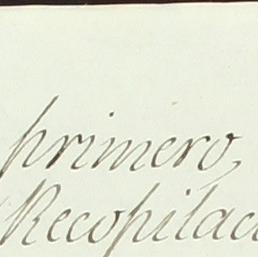 primero,
Recopilac